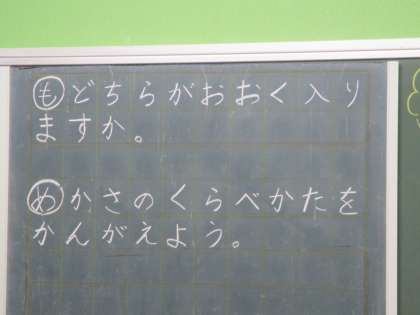 もどちらがおおく入り
ますか。
めかさのくらべかたを
かんがえよう。